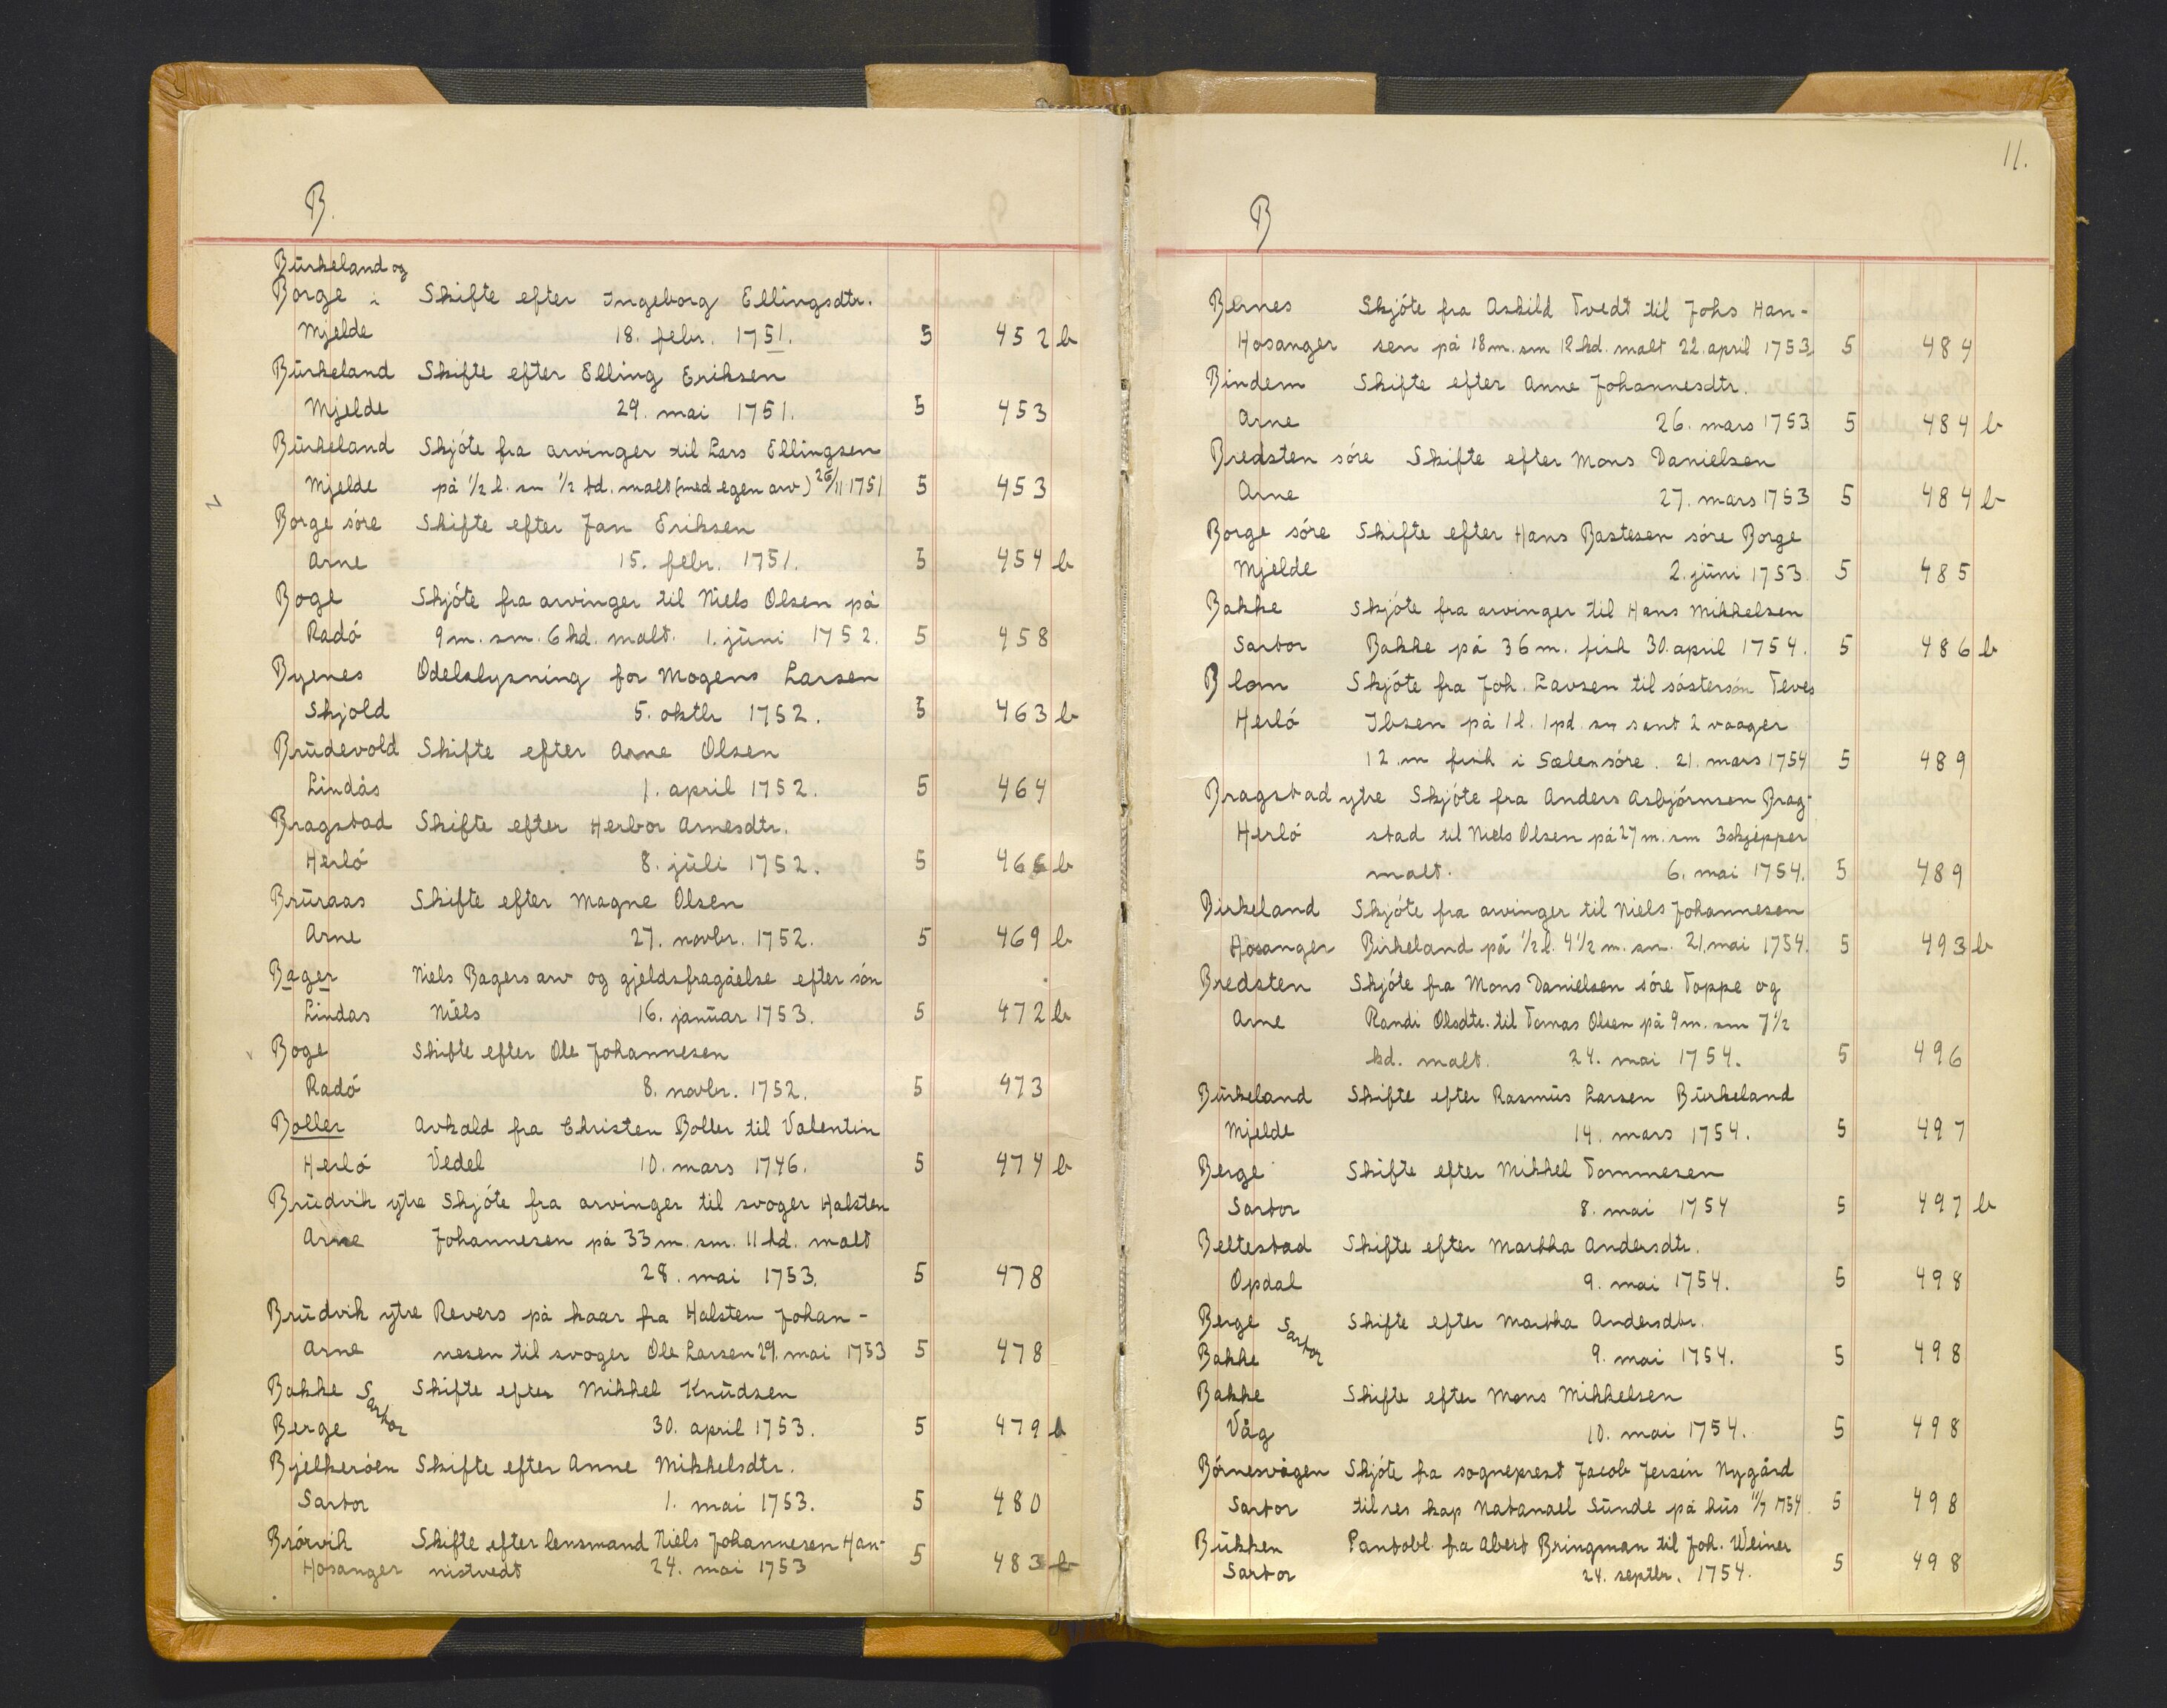 B.
Bürkeland og
Borge i Skifte efter Ingeborg Ellingsdtr.
Mjelde 18. febr. 1751. 5 452 b
Bürkeland Skifte efter Elling Eriksen
Mjelde 29. mai 1751. 5 453
Bürkeland Skjóte fra arvinger til Lars Ellingsen
Mjelde på 1/2 l. sm 1/2 td. malt (med egen arv) 26/11 1751 5 453
Borge sóre Skifte efter Jan Eriksen
Arne 15. febr. 1751. 5 454 b
Boge Skjóte fra arvinger til Niels Olsen på
Radó 9 m. sm. 6 kd. malt. 1. jüni 1752. 5 458
Byenes Odelslysning for Mogens Larsen
Skjold 5. oktbr 1752. 5 463 b
Brüdevold Skifte efter Arne Olsen
Lindås 1. april 1752. 5 464
Bragstad Skifte efter Herbor Arnesdtr.
Herló 8. jüli 1752. 5 466 b
Brüraas Skifte efter Magne Olsen
Arne 27. novbr. 1752. 5 469 b
Bager Niels Bagers arv og gjeldsfragåelse efter són
Lindas Niels 16. janüar 1753. 5 472 b
Boge Skifte efter Ole Johannesen
Radó 8. novbr. 1752. 5 473
Boller Avkald fra Christen Boller til Valentin
Herló Vedel 10. mars 1746. 5 474 b
Brüdvik ytre Skjóte fra arvinger til svoger Halsten
Arne Johannesen på 33 m. sm. 11 kd. malt
28. mai 1753. 5 478
Brüdvik ytre Revers på kaar fra Halsten Johan-
Arne nesen til svoger Ole Larsen 29. mai 1753 5 478
Bakke Sartor Skifte efter Mikkel Knüdsen
Berge 30. april 1753. 5 479 b
Bjelkeróen Skifte efter Anne Mikkelsdtr.
Sartor 1. mai 1753. 5 480
Brórvik Skifte efter lensmand Niels Johannesen Han-
Hosanger nistvedt 24. mai 1753 5 483 b
11.
B
Bernes Skjóte fra Askild Tvedt til Johs Han-
Hosanger sen på 18 m. sm 12 kd. malt 22. april 1753. 5 484
Bindem Skifte efter Anne Johannesdtr.
Arne 26. mars 1753 5 484 b
Bredsten sóre Skifte efter Mons Danielsen
Arne 27. mars 1753 5 484 b
Borge sóre Skifte efter Hans Bastesen sóre Borge
Mjelde 2. jüni 1753. 5 485
Bakke Skjóte fra arvinger til Hans Mikkelsen
Sartor Bakke på 36 m. fisk 30. april 1754. 5 486 b
Blom Skjóte fra Joh. Lavsen til sóstersón Teves
Herló Ibsen på 1 l. 1 pd. sm samt 2 vaager
12 m fisk i Sælen sóre. 21. mars 1754 5 489
Bragstad ytre Skjóte fra Anders Asbjórnsen Brag-
Herló stad til Niels Olsen på 27 m. sm 3 skjepper
malt. 6. mai 1754. 5 489
Birkeland Skjóte fra arvinger til Niels Johannesen
Hosanger Birkeland på 1/2 l. 4 1/2 m. sm. 21. mai 1754. 5 493 b
Bredsten Skjóte fra Mons Danielsen sóre Toppe og
Arne Randi Olsdtr. til Tomas Olsen på 9 m. sm 7 1/2
kd. malt. 24. mai 1754. 5 496
Bürkeland Skifte efter Rasmüs Larsen Bürkeland
Mjelde 14. mars 1754. 5 497
Berge Skifte efter Mikkel Tommesen
Sartor 8. mai 1754 5 497 b
Beltestad Skifte efter Martha Andersdtr.
Opdal 9. mai 1754. 5 498
Berge Sartor Skifte efter Martha Andersdtr.
Bakke 9. mai 1754. 5 498
Bakke Skifte efter Mons Mikkelsen
Våg 10. mai 1754. 5 498
Bórnesvågen Skjóte fra sogneprest Jacob Jersin Nygård
Sartor til res kap Natanael Sünde på hüs 11/7 1754. 5 498
Bükken Pantobl. fra Abert Bringman til Joh. Weiner
Sartor 24. septbr. 1754. 5 498